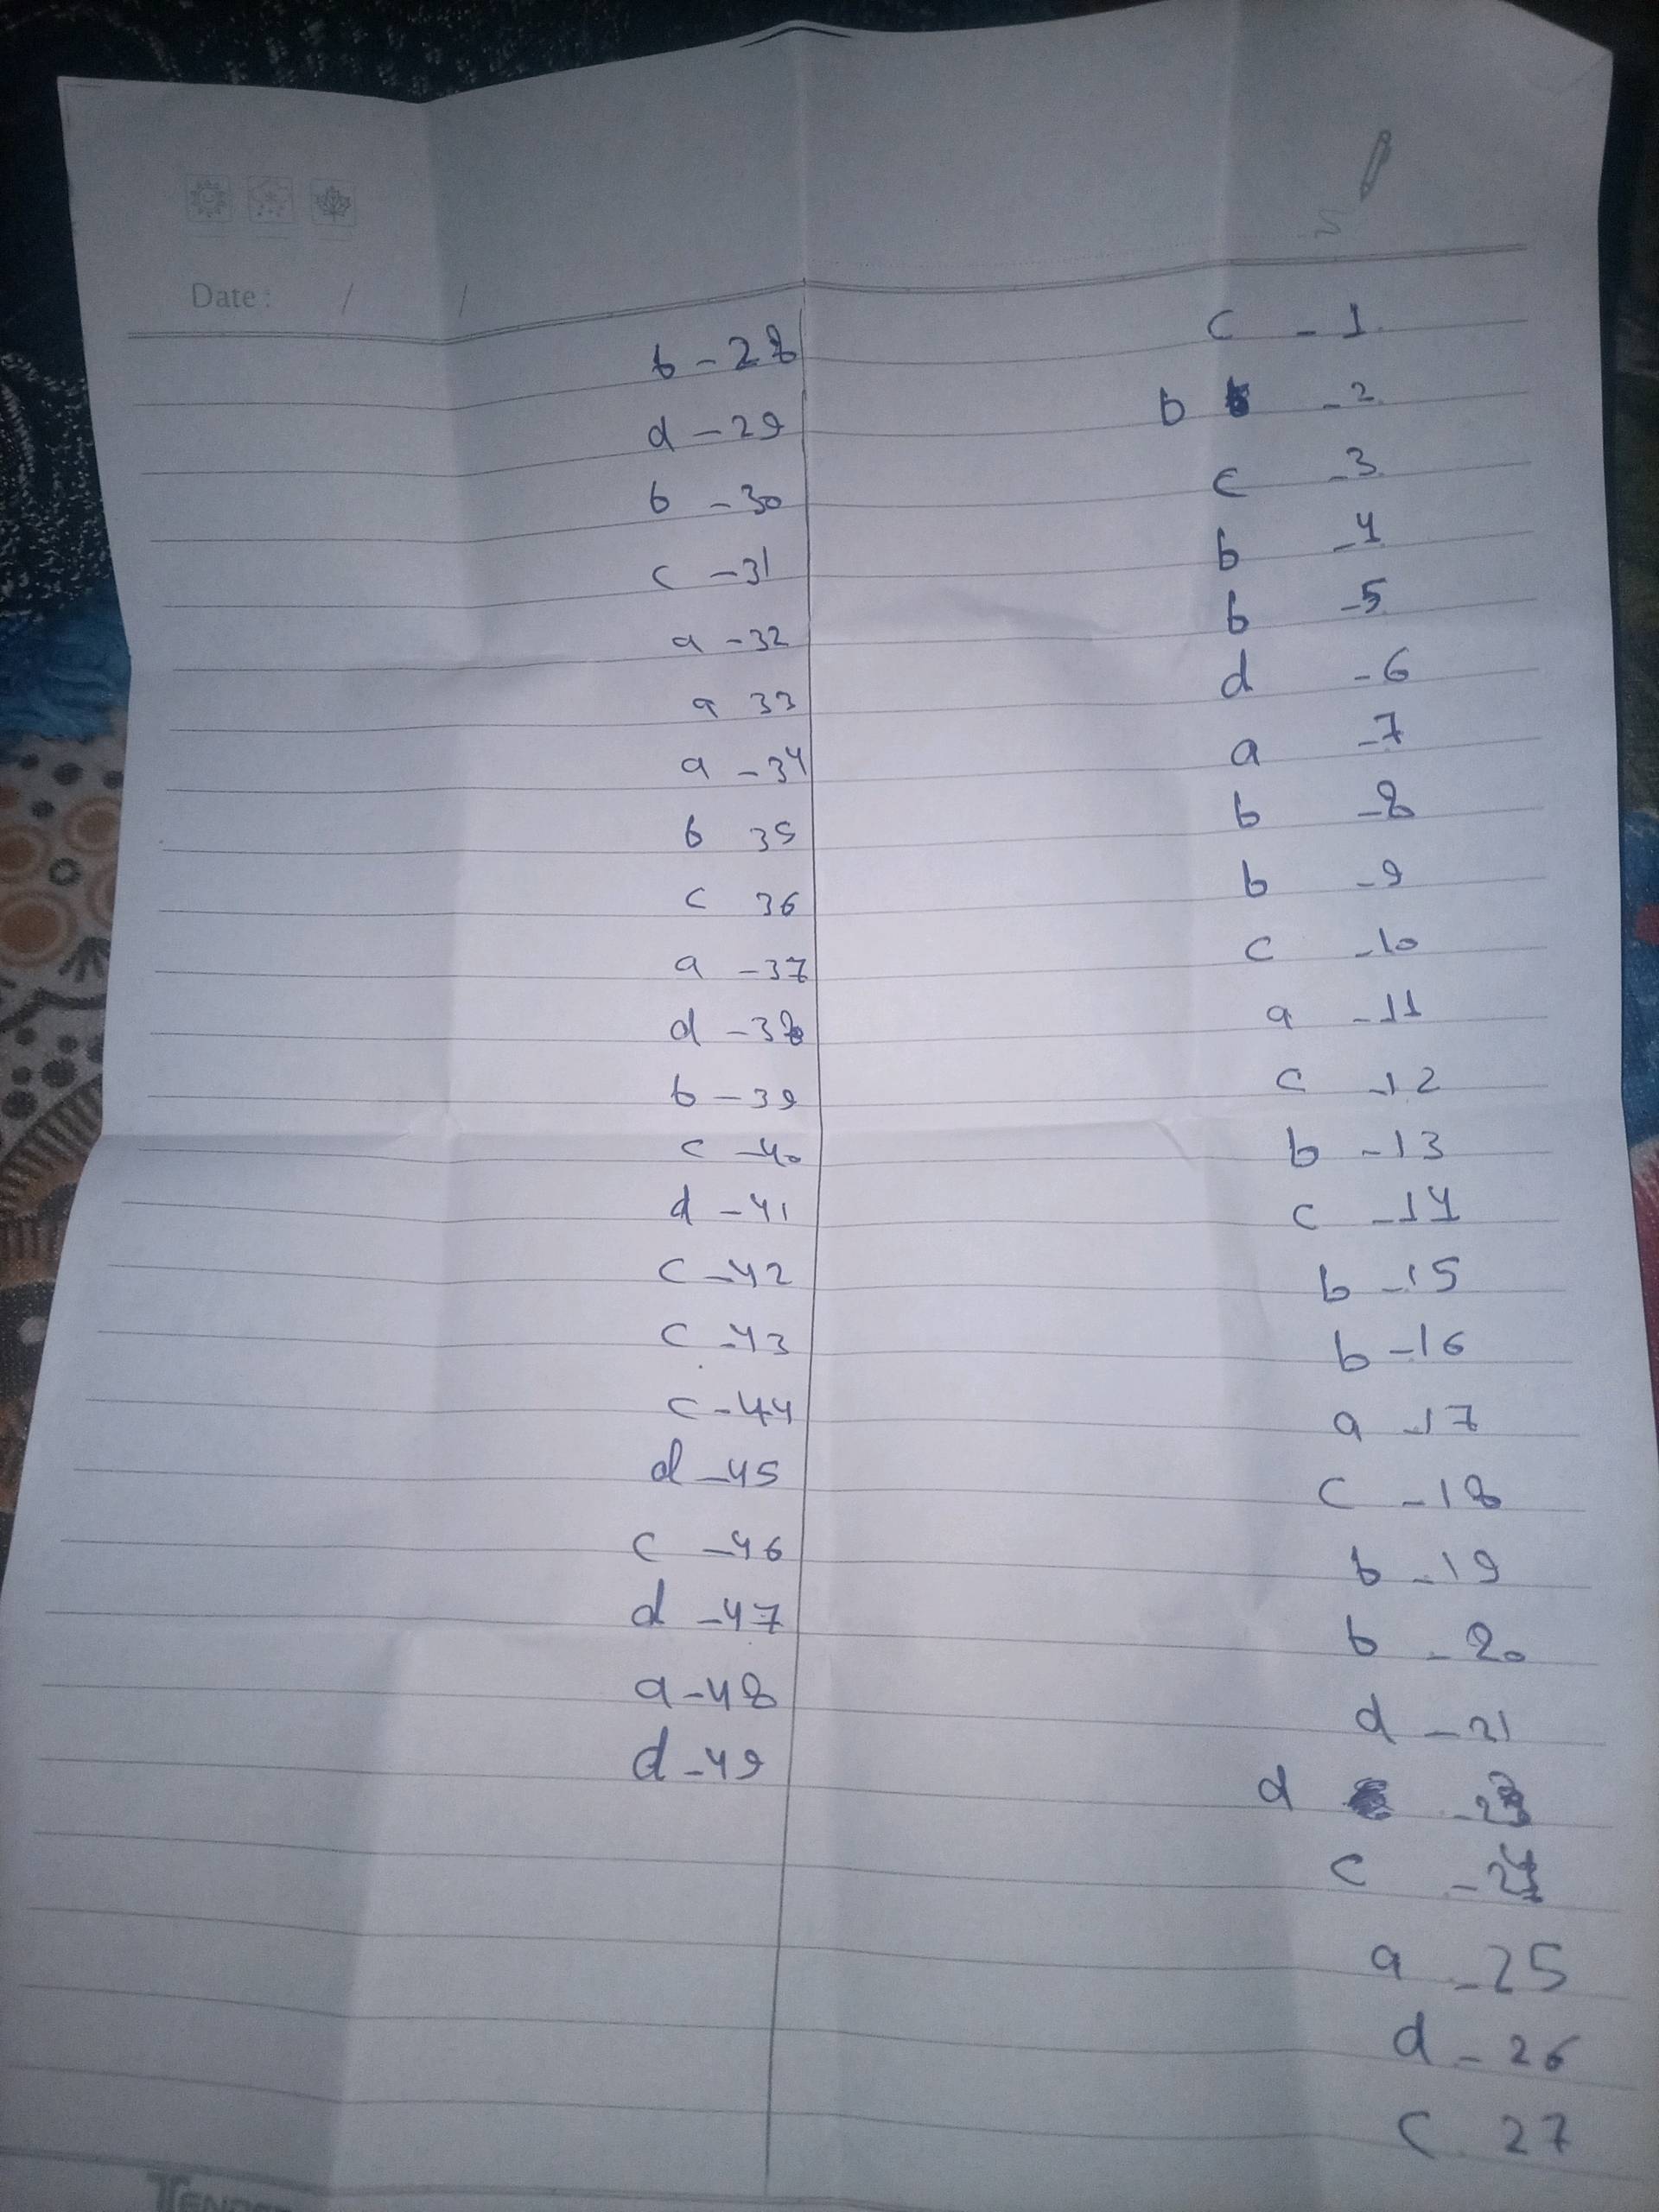 Date: / /
c - 1
b - 2
c - 3
b - 4
b - 5
d - 6
a - 7
b - 8
b - 9
c - 10
a - 11
c - 12
b - 13
c - 14
b - 15
b - 16
a - 17
c - 18
b - 19
b - 20
d - 21
d - 23
c - 24
a - 25
d - 26
c 27
b - 28
d - 29
b - 30
c - 31
a - 32
a 33
a - 34
b 35
c 36
a - 37
d - 38
b - 39
c - 40
d - 41
c - 42
c - 43
c - 44
d - 45
c - 46
d - 47
a - 48
d - 49